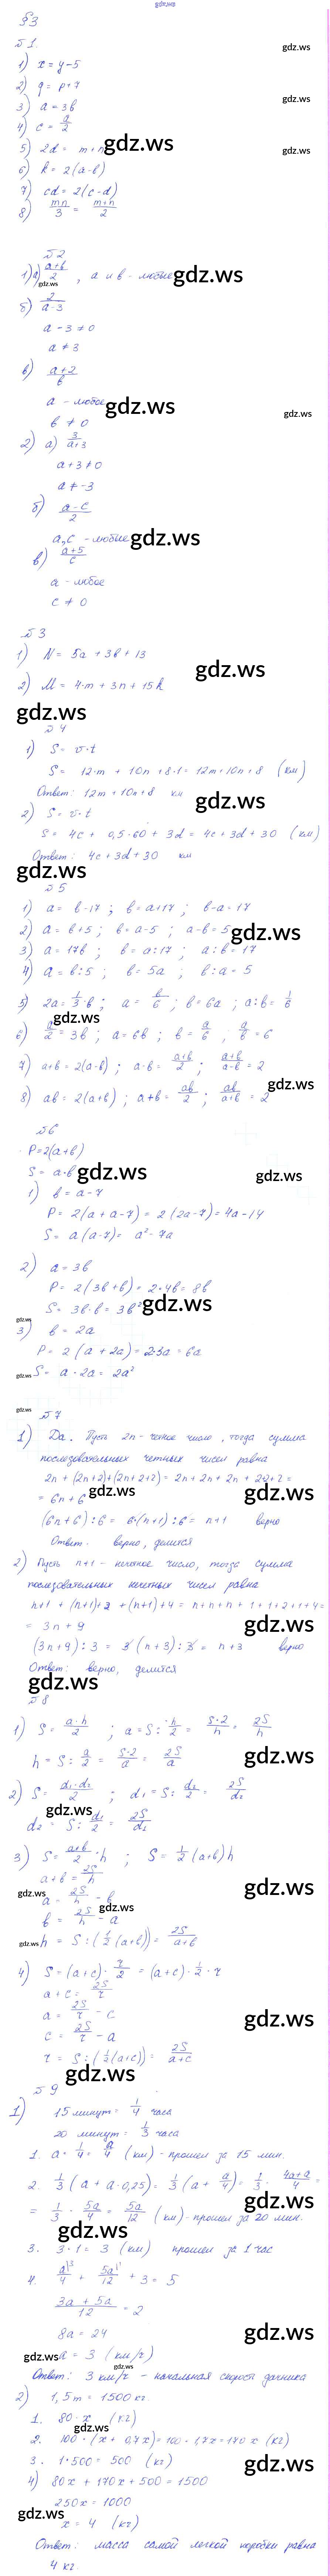 gdz.ws
§3
№1.
1) x = y - 5
gdz.ws
2) q = p + 7
gdz.ws
3) a = 3b
4) c = a/2
gdz.ws
5) 2d = m + n
gdz.ws
6) k = 2(a-b)
7) cd = 2(c-d)
8) mn/3 = (m+n)/2
№2
1) а) (a+b)/2, a и b - любые
gdz.ws
gdz.ws
б) 2/(a-3)
a - 3 ≠ 0
a ≠ 3
в) (a+2)/b
a - любое
gdz.ws
gdz.ws
b ≠ 0
2) а) 3/(a+3)
a + 3 ≠ 0
a ≠ -3
б) (a-c)/2
a, c - любые
gdz.ws
в) (a+5)/c
a - любое
c ≠ 0
№3
1) N = 5a + 3b + 13
gdz.ws
2) M = 4·m + 3n + 15k
gdz.ws
№4
1) S = v·t
S = 12·m + 10n + 8·1 = 12m + 10n + 8 (км)
Ответ: 12m + 10n + 8 км
gdz.ws
2) S = v·t
S = 4c + 0,5·60 + 3d = 4c + 3d + 30 (км)
Ответ: 4c + 3d + 30 км
gdz.ws
№5
1) a = b - 17; b = a + 17; b - a = 17
2) a = b + 5; b = a - 5; a - b = 5
gdz.ws
3) a = 17b; b = a : 17; a : b = 17
4) a = b : 5; b = 5a; b : a = 5
5) 2a = 1/3·b; a = b/6; b = 6a; a : b = 1/6
gdz.ws
6) a/2 = 3b; a = 6b; b = a/6; a/b = 6
7) a+b = 2(a-b); a-b = (a+b)/2; (a+b)/(a-b) = 2
gdz.ws
8) ab = 2(a+b); a+b = ab/2; ab/(a+b) = 2
№6
P = 2(a+b)
S = a·b
gdz.ws
gdz.ws
1) b = a - 7
P = 2(a + a - 7) = 2(2a - 7) = 4a - 14
S = a(a-7) = a² - 7a
2) a = 3b
P = 2(3b + b) = 2·4b = 8b
S = 3b·b = 3b²
gdz.ws
gdz.ws
3) b = 2a
P = 2(a + 2a) = 2·3a = 6a
gdz.ws
S = a·2a = 2a²
gdz.ws
№7
1) Да. Пусть 2n - четное число, тогда сумма
последовательных четных чисел равна
2n + (2n+2) + (2n+2+2) = 2n + 2n + 2n + 2+2+2 =
= 6n + 6
gdz.ws
gdz.ws
(6n+6) : 6 = 6(n+1) : 6 = n+1 верно
Ответ: верно, делится
2) Пусть n+1 - нечетное число, тогда сумма
последовательных нечетных чисел равна
n+1 + (n+1)+2 + (n+1)+4 = n+n+n+1+1+2+1+4 =
= 3n + 9
gdz.ws
(3n+9) : 3 = 3(n+3) : 3 = n+3 верно
Ответ: верно, делится
gdz.ws
№8
1) S = a·h/2; a = S : h/2 = S·2/h = 2S/h
gdz.ws
h = S : a/2 = S·2/a = 2S/a
2) S = d₁·d₂/2; d₁ = S : d₂/2 = 2S/d₂
gdz.ws
d₂ = S : d₁/2 = 2S/d₁
3) S = (a+b)/2·h; S = 1/2(a+b)h
a + b = 2S/h
gdz.ws
gdz.ws
a = 2S/h - b
gdz.ws
b = 2S/h - a
gdz.ws
h = S : (1/2(a+b)) = 2S/(a+b)
4) S = (a+c)·r/2 = (a+c)·1/2·r
a + c = 2S/r
a = 2S/r - c
gdz.ws
c = 2S/r - a
r = S : (1/2(a+c)) = 2S/(a+c)
gdz.ws
№9
1) 15 минут = 1/4 часа
20 минут = 1/3 часа
1. a·1/4 = a/4 (км) - прошел за 15 мин.
2. 1/3(a + a·0,25) = 1/3(a + a/4) = 1/3·(4a+a)/4 =
gdz.ws
= 1/3·5a/4 = 5a/12 (км) - прошел за 20 мин.
gdz.ws
3. 3·1 = 3 (км) прошел за 1 час
4. a/4 + 5a/12 + 3 = 5
(3a + 5a)/12 = 2
gdz.ws
8a = 24
gdz.ws
a = 3 (км/ч)
gdz.ws
Ответ: 3 км/ч - начальная скорость дачника
2) 1,5 т = 1500 кг.
1. 80·x (кг)
gdz.ws
2. 100·(x + 0,7x) = 100·1,7x = 170x (кг)
3. 1·500 = 500 (кг)
gdz.ws
4) 80x + 170x + 500 = 1500
250x = 1000
gdz.ws
x = 4 (кг)
Ответ: масса самой легкой коробки равна
4 кг